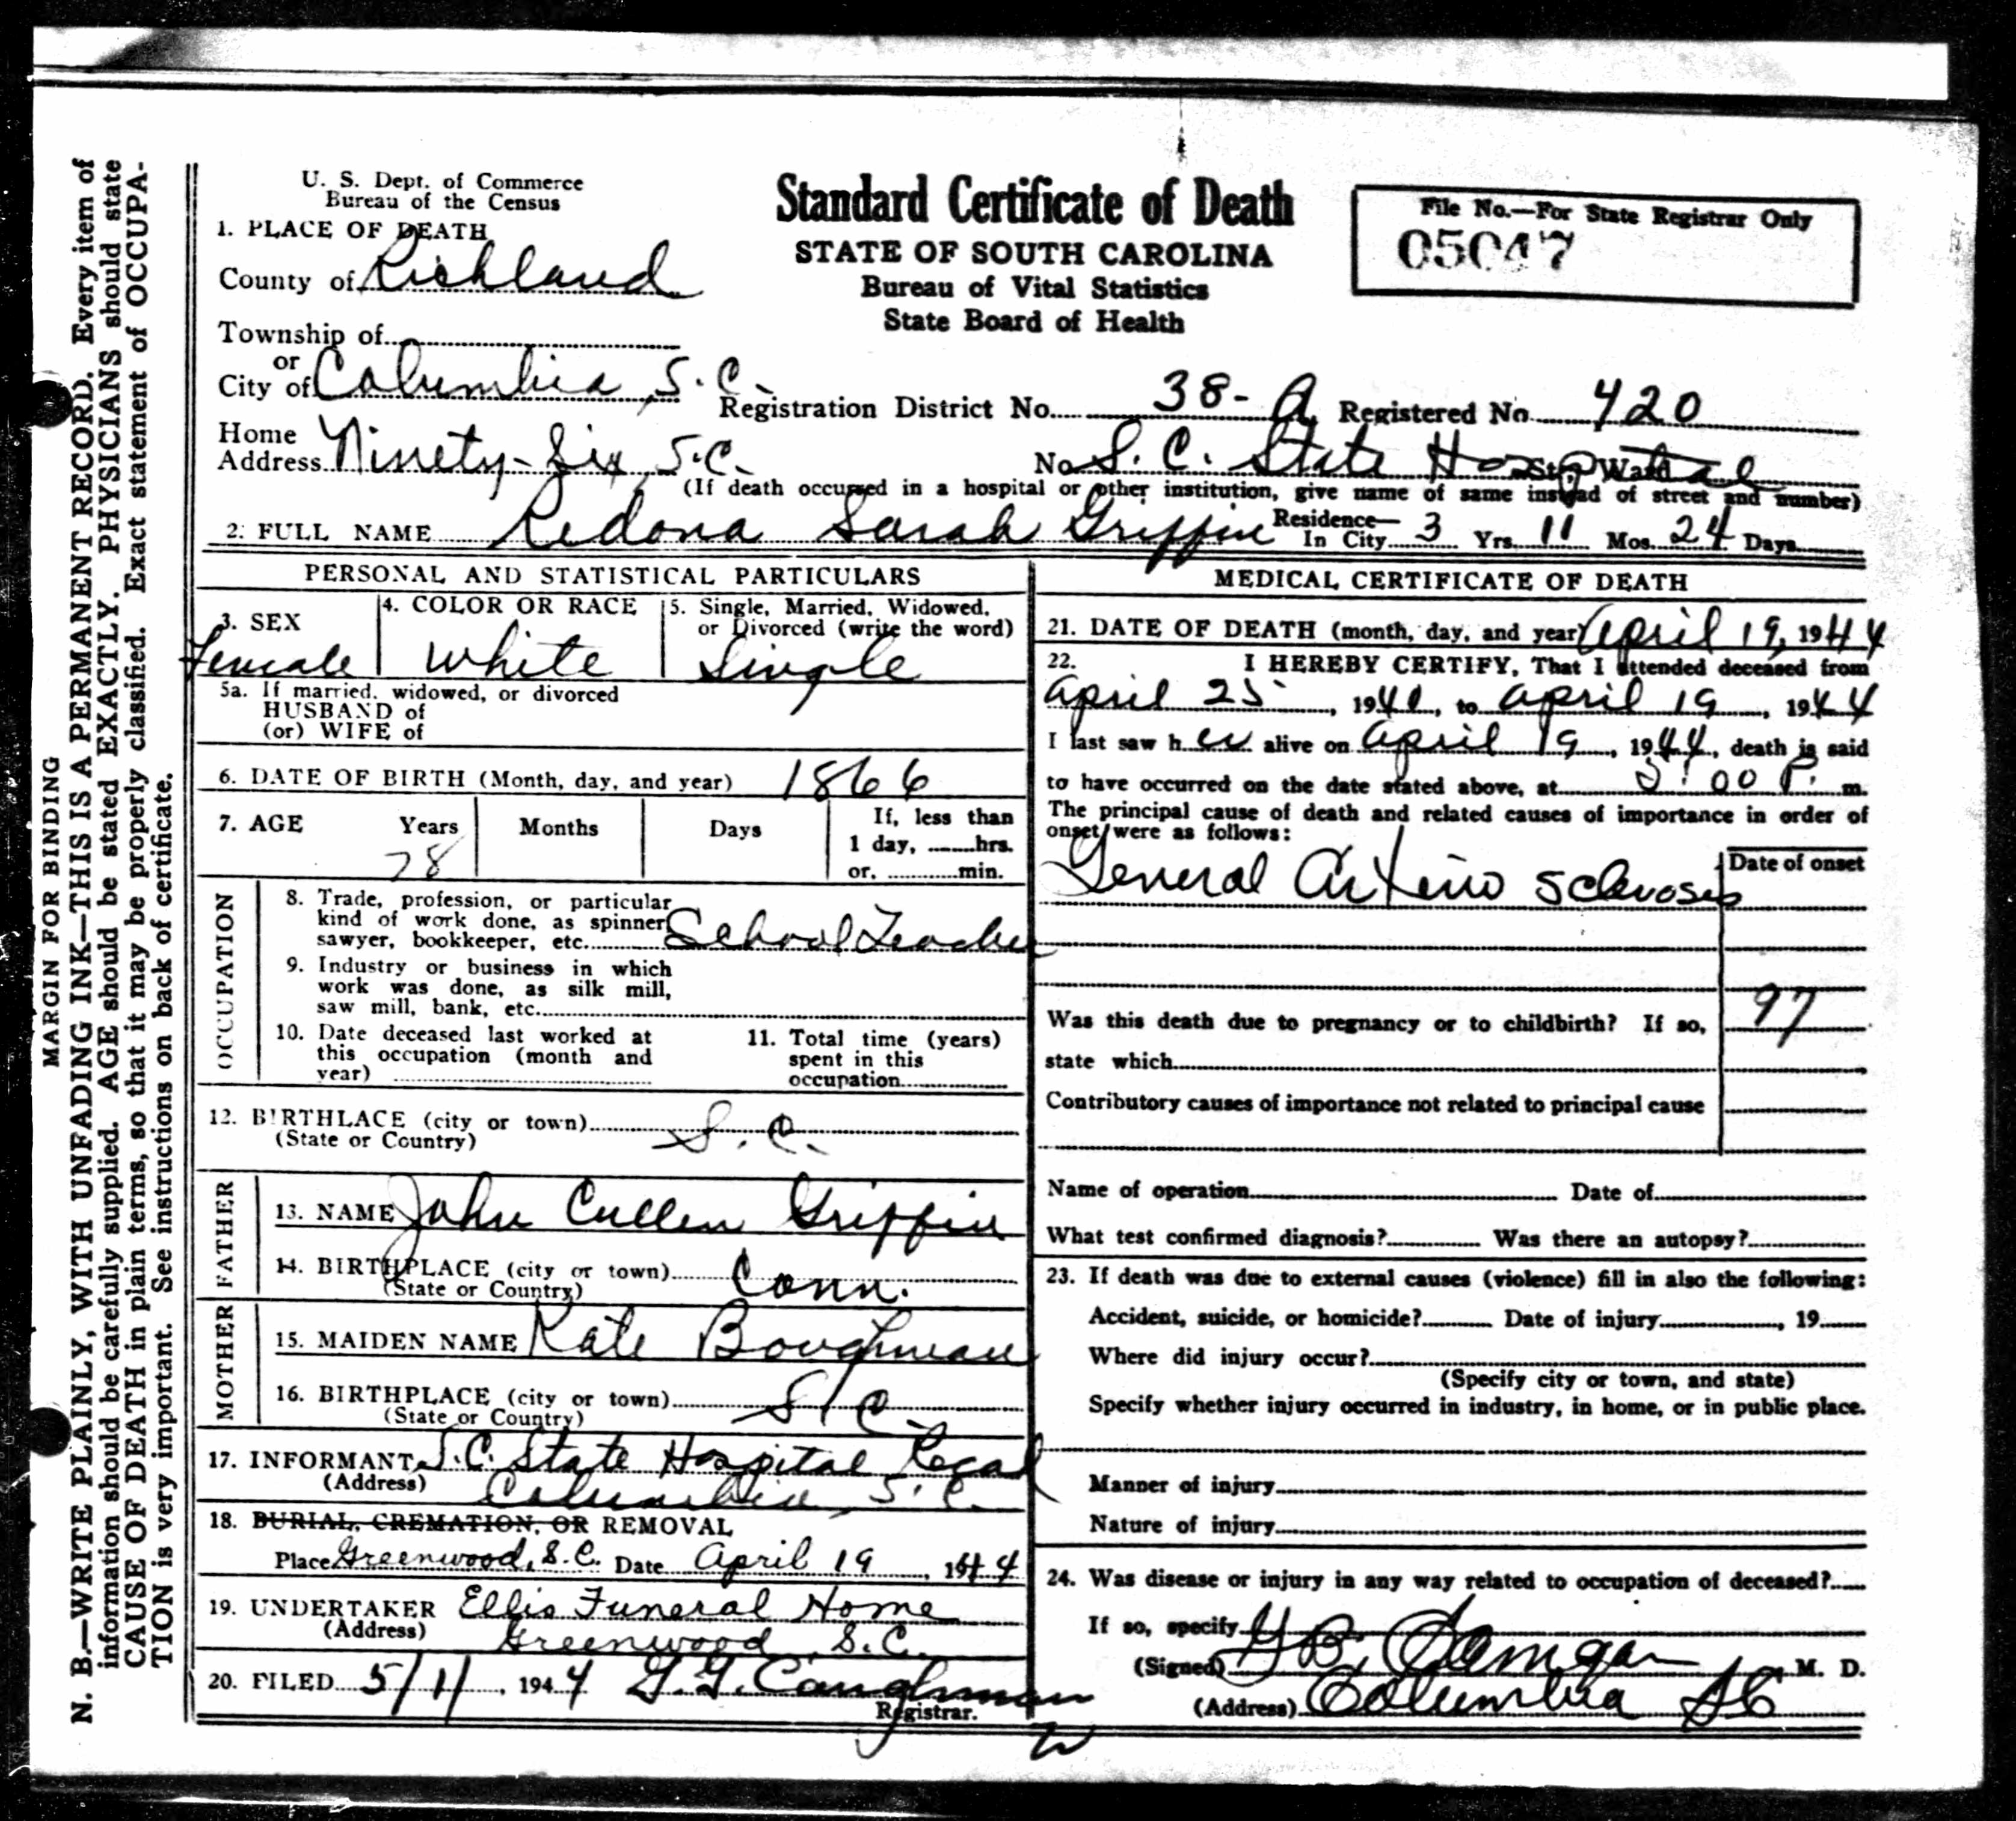 MARGIN FOR BINDING
N. B.—WRITE PLAINLY, WITH UNFADING INK—THIS IS A PERMANENT RECORD. Every item of
information should be carefully supplied. AGE should be stated EXACTLY. PHYSICIANS should state
CAUSE OF DEATH in plain terms, so that it may be properly classified. Exact statement of OCCUPA-
TION is very important. See instructions on back of certificate.
U. S. Dept. of Commerce
Bureau of the Census
Standard Certificate of Death
STATE OF SOUTH CAROLINA
Bureau of Vital Statistics
State Board of Health
File No.—For State Registrar Only
05047
1. PLACE OF DEATH
County of Richland
Township of
or
City of Columbia, S.C.
Registration District No. 38-A Registered No. 420
Home
Address Ninety-Six, S.C.
No. S. C. State Hospital St., Ward
(If death occurred in a hospital or other institution, give name of same instead of street and number)
2. FULL NAME Redona Sarah Griffin Residence—
In City 3 Yrs. 11 Mos. 24 Days
PERSONAL AND STATISTICAL PARTICULARS
3. SEX
Female
4. COLOR OR RACE
White
5. Single, Married, Widowed,
or Divorced (write the word)
Single
5a. If married, widowed, or divorced
HUSBAND of
(or) WIFE of
6. DATE OF BIRTH (Month, day, and year) 1866
7. AGE Years Months Days If, less than
1 day, hrs.
or, min.
78
OCCUPATION
8. Trade, profession, or particular
kind of work done, as spinner
sawyer, bookkeeper, etc. School Teacher
9. Industry or business in which
work was done, as silk mill,
saw mill, bank, etc.
10. Date deceased last worked at
this occupation (month and
year)
11. Total time (years)
spent in this
occupation
12. BIRTHLACE (city or town)
(State or Country) S.C.
FATHER
13. NAME John Cullen Griffin
14. BIRTHPLACE (city or town) Conn.
(State or Country)
MOTHER
15. MAIDEN NAME Kate Boughman
16. BIRTHPLACE (city or town) S.C.
(State or Country)
17. INFORMANT S.C. State Hospital
(Address) Columbia, S.C.
18. BURIAL, CREMATION, OR REMOVAL
Place Greenwood, S.C. Date April 19, 1944
19. UNDERTAKER Ellis Funeral Home
(Address) Greenwood, S.C.
20. FILED 5/11, 1944 G.G. Caughman
Registrar.
MEDICAL CERTIFICATE OF DEATH
21. DATE OF DEATH (month, day, and year) April 19, 1944
22. I HEREBY CERTIFY, That I attended deceased from
April 25, 1940, to April 19, 1944
I last saw her alive on April 19, 1944, death is said
to have occurred on the date stated above, at 5:00 P. m.
The principal cause of death and related causes of importance in order of
onset were as follows:
Date of onset
General Arterio sclerosis
97
Was this death due to pregnancy or to childbirth? If so,
state which
Contributory causes of importance not related to principal cause
Name of operation Date of
What test confirmed diagnosis? Was there an autopsy?
23. If death was due to external causes (violence) fill in also the following:
Accident, suicide, or homicide? Date of injury , 19
Where did injury occur?
(Specify city or town, and state)
Specify whether injury occurred in industry, in home, or in public place.
Manner of injury
Nature of injury
24. Was disease or injury in any way related to occupation of deceased?
If so, specify
(Signed) M. D.
(Address) Columbia SC